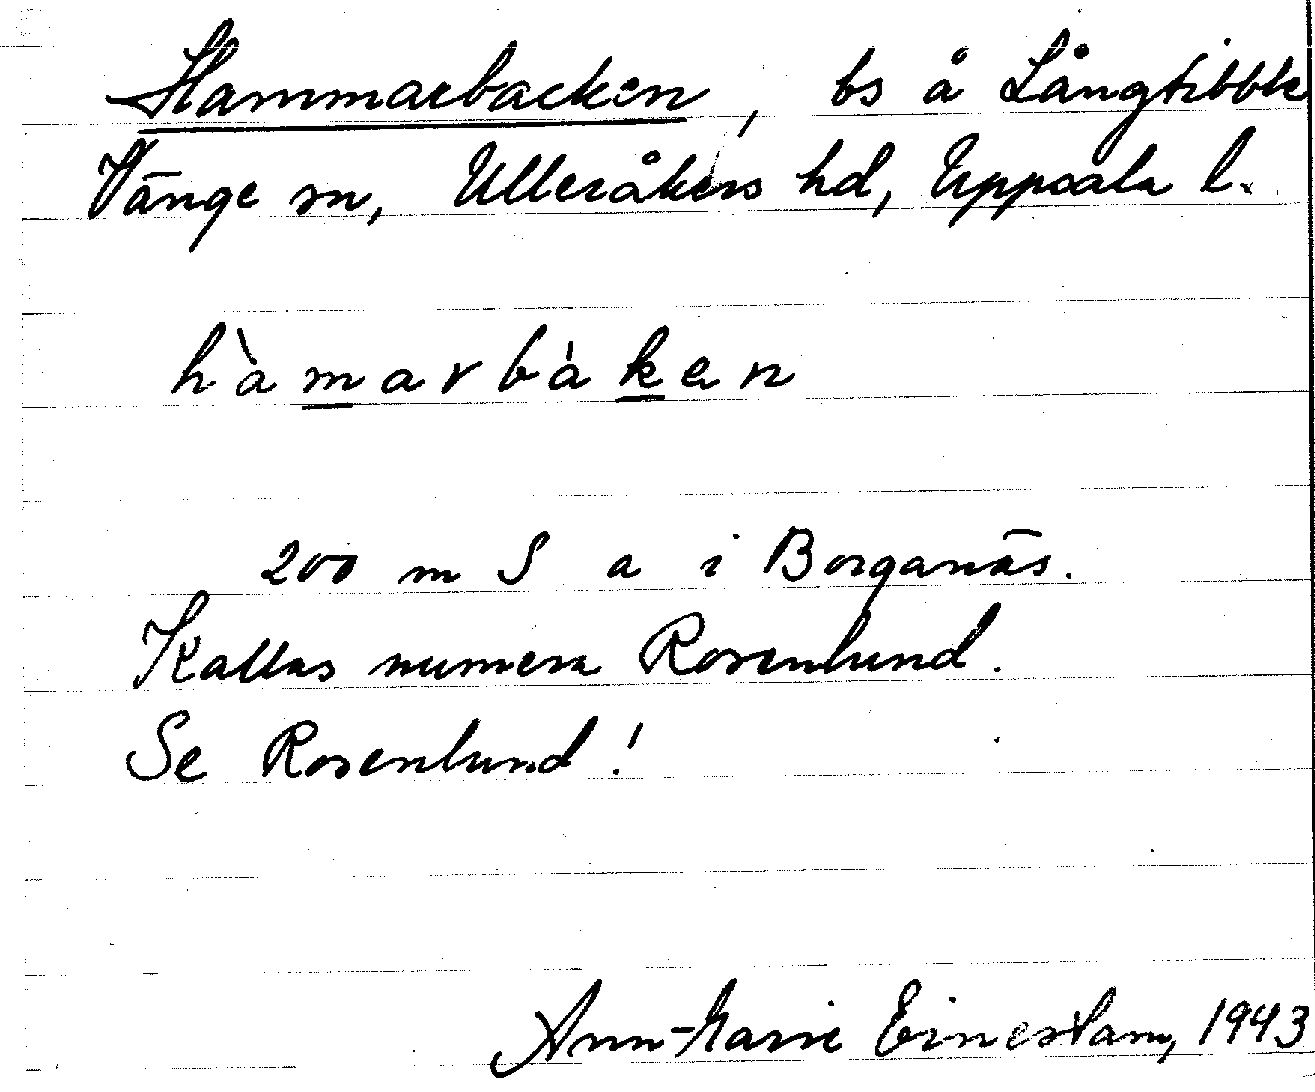 Hammarbacken, bs å Långtibble
Vänge sn, Ulleråkers hd, Uppsala l.
hàmarbàken
200 m S a i Borganäs.
Kallas numera Rosenlund.
Se Rosenlund!
Ann-Marie Ernestam, 1943